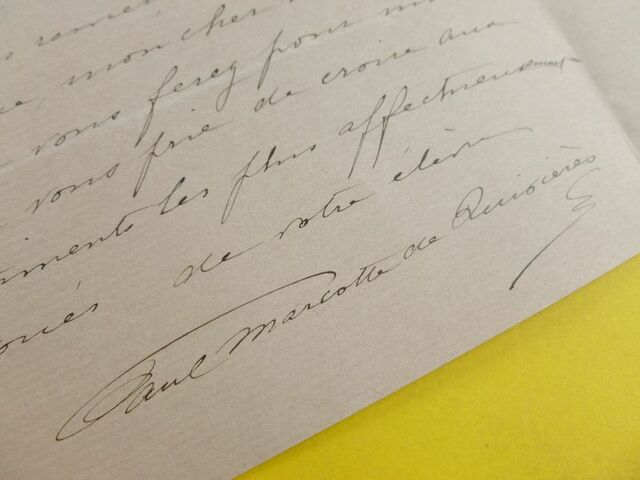 mon cher
vous ferez pour m
vous prie de croire aux
timents les plus affectueusement
oués de votre élève
Paul Marcotte de Quivières